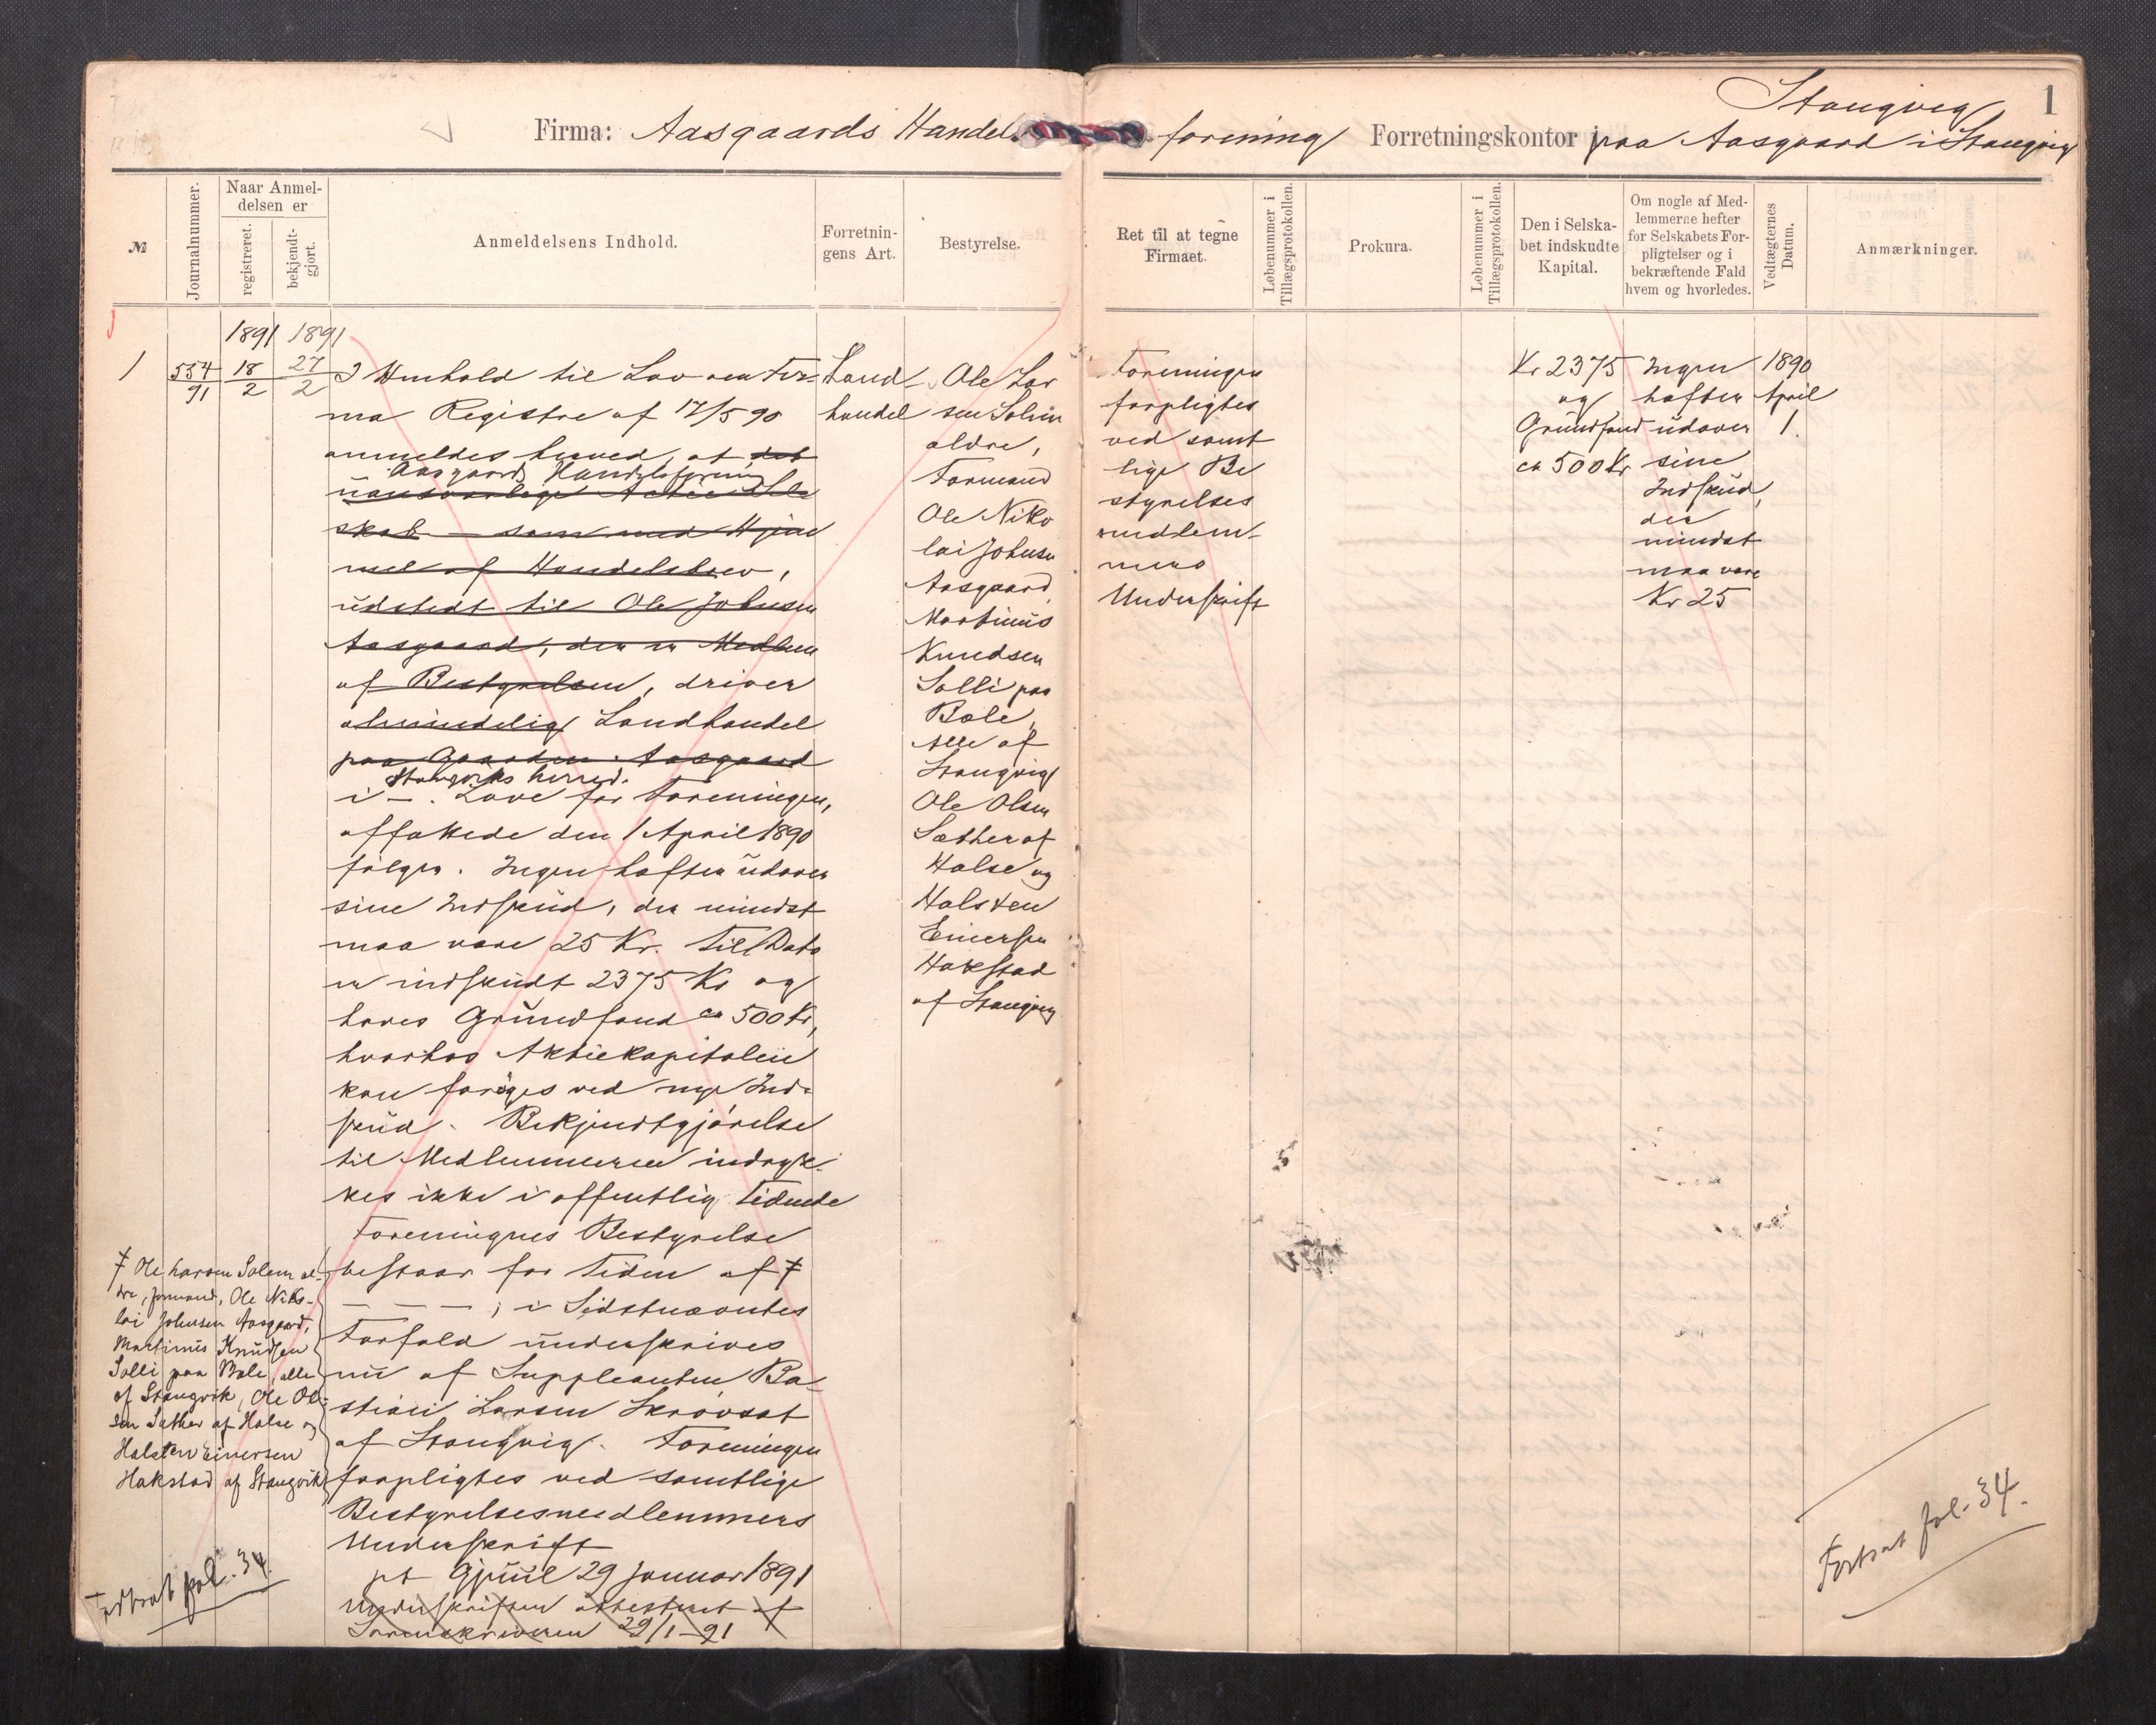 1
Stangvig
Firma: Aasgaards Handels forening Forretningskontor i paa Aasgaard i Stangvig
№
Journalnummer.
Naar Anmel-
delsen er
registreret.
bekjendt-
gjort.
Anmeldelsens Indhold.
Forretnin-
gens Art.
Bestyrelse.
Ret til at tegne
Firmaet.
Løbenummer i
Tillægsprotokollen.
Prokura.
Løbenummer i
Tillægsprotokollen.
Den i Selska-
bet indskudte
Kapital.
Om nogle af Med-
lemmerne hefter
for Selskabets For-
pligtelser og i
bekræftende Fald
hvem og hvorledes.
Vedtægternes
Datum.
Anmærkninger.
1
554
91
1891
18
2
1891
27
2
I Henhold til Lov om Fir-
ma Registre af 17/5 90
anmeldes herved, at det
Aasgaards Handelsforening
uansvarlige Aktiesel
skab – som med Hjem
mel af Handelsbrev,
udstedt til Ole Johnsen
Aasgaard, der er Medlem
af Bestyrelsen, driver
almindelig Landhandel
paa Gaarden Aasgaard
Stangviks herred.
i – . Love for Foreningen,
affattede den 1 April 1890
følger. Ingen hefter udover
sine Indskud, der mindst
maa være 25 Kr. Til Dato
er indskudt 2375 Kr og
haves Grundfond ca 500 Kr,
hvorhos Aktiekapitalen
kan forøges ved nye Ind-
skud. Bekjendtgjørelse
til Medlemmerne indryk-
kes ikke i offentlig Tidende
Foreningens Bestyrelse
bestaar for Tiden af ⨍
– – – ; i Sidstnævntes
Forfald underskrives
nu af Suppleanten Ba-
stian Larsen Skrøvset
af Stangvig. Foreningen
forpligtes ved samtlige
Bestyrelsesmedlemmers
Underskrift
pt Gjüul 29 Januar 1891
Underskriften attesteret af
Sorenskriveren 29/1–91
⨍ Ole Larsen Solem æl-
dre, formand, Ole Niko-
lai Johnsen Aasgaard,
Martinus Knudsen
Solli paa Bøle, alle
af Stangvik, Ole Ol-
sen Sæther af Halse og
Halsten Einersen
Hakstad af Stangvik
Fortsat fol. 34.
Land
handel
Ole Lar
sen Solem
ældre,
Formand
Ole Niko
lai Johnsen
Aasgaard,
Martinus
Knudsen
Solli paa
Bøle,
Alle af
Stangvig
Ole Olsen
Sæther af
Halse og
Halsten
Einersen
Hakstad
af Stangvig
Foreningen
forpligtes
ved samt
lige Be
styrelses
medlem-
mers
Underskrift
Kr 2375
og
Grundfond
ca 500 Kr
Ingen
hefter
udover
sine
Indskud,
der
mindst
maa være
Kr 25
1890
April
1.
Fortsat fol. 34.